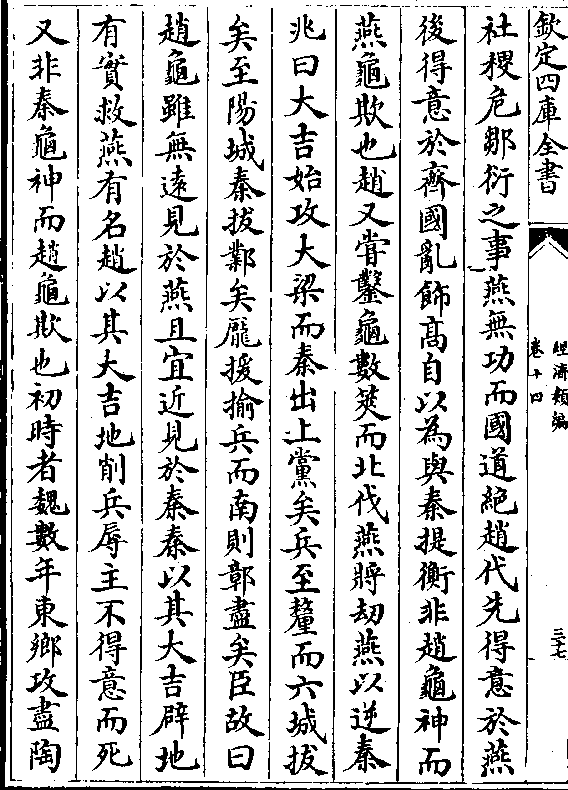 欽定四庫全書
經濟類編
卷十四
三七
社稷危鄒衍之事燕無功而國道絕趙代先得意於燕
後得意於齊國亂飾髙自以為與秦提衡非趙龜神而
燕龜欺也趙又嘗鑿龜數筴而北伐燕將劫燕以逆秦
兆曰大吉始攻大梁而秦出上黨矣兵至釐而六城拔
矣至陽城秦拔鄴矣龐援揄兵而南則鄣盡矣臣故曰
趙龜雖無逺見於燕且宜近見於秦秦以其大吉辟地
有實救燕有名趙以其大吉地削兵辱主不得意而死
又非秦龜神而趙龜欺也初時者魏數年東鄉攻盡陶